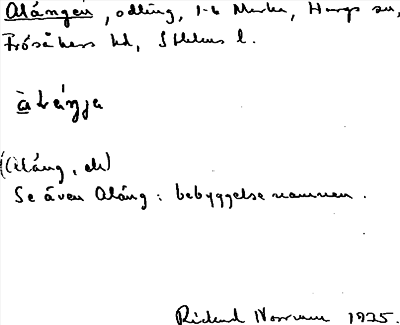 Alängen, odling, 1-6 Marka, Hargs sn,
Frösåkers hd, Sthlms l.
(Aläng, ek)
Se även Aläng : bebyggelsenamnen.
Rickard Norrman 1925.